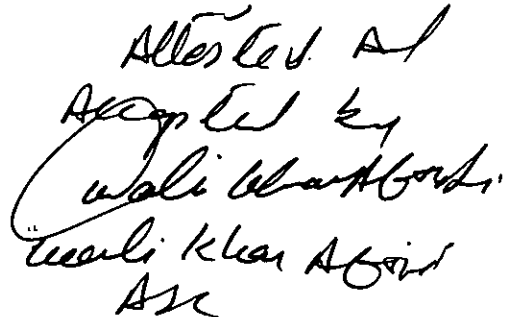 Attested And
Accepted by
Wali Khan Afridi
Wali Khan Afridi
ASC